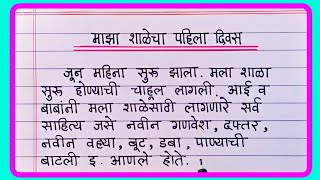 माझा शाळेचा पहिला दिवस
जून महिना सुरू झाला. मला शाळा
सुरू होण्याची चाहूल लागली. आई व
बाबांनी मला शाळेसाठी लागणारे सर्व
साहित्य जसे नवीन गणवेश, दप्तर,
नवीन वह्या, बूट, डबा, पाण्याची
बाटली इ. आणले होते.